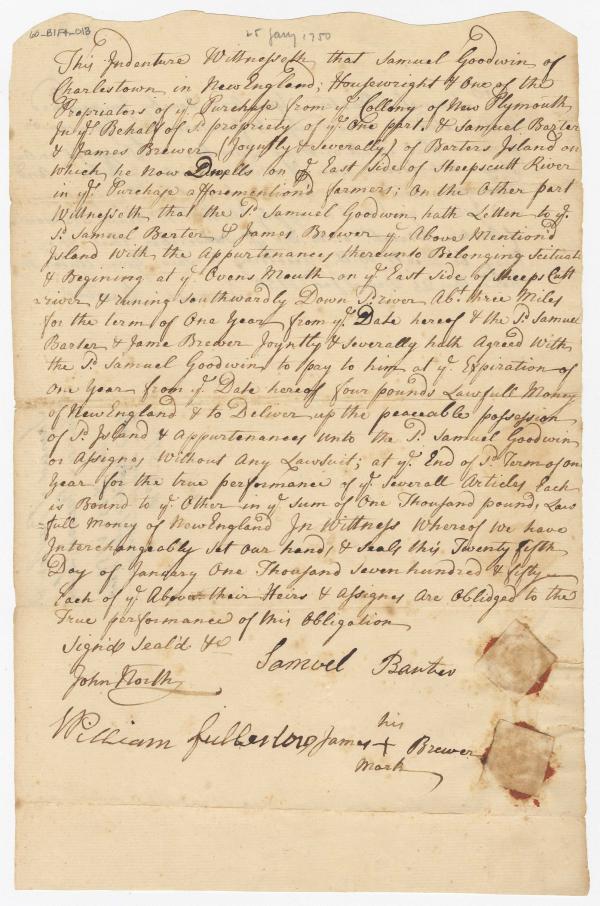 60-B1F4-018
25 Jany 1750
This Indenture Wittnesseth that Samuel Goodwin of
Charlestown in NewEngland; Housewright & One of the
Propriators of ye. Purchase from ye. Collony of New Plymouth
In ye. Behalf of sd. propriety of ye. One part. & Samuel Barter
& James Brewer (Joyntly & Severally) of Barters Island on
which he Now Dwells on ye East Side of Sheepscutt River
in ye. Purchase afforementiond farmers; On the Other part
Wittnesseth that the sd. Samuel Goodwin hath Letten to ye.
sd. Samuel Barter & James Brewer ye. Above Mention'd
Island With the Appurtenances thereunto Belonging Scituate
& Begining at ye. Ovens Mouth on ye. East Side of Sheeps Cutt
river & runing Southwardly Down sd. river Abt. three Miles
for the term of One Year from ye. Date hereof & the sd. Samuel
Barter & Jame Brewer Joyntly & Severally hath Agreed With
the sd. Samuel Goodwin to pay to him at ye. Expiration of
One Year from ye. Date hereof four pounds Lawfull Money
of NewEngland & to Deliver up the peaceable possession
of sd. Island & Appurtenances Unto the sd. Samuel Goodwin
or Assignes Without Any Lawsuit; at ye. End of sd. Term of on
Year for the true performance of ye. Severall Articles Each
is Bound to ye. Other in ye. Sum of One Thousand pounds Law
=full Money of NewEngland In Wittness Whereof We have
Interchangeably Set Our hands & Seals this Twenty fifth
Day of January One Thousand Seven hundred & fifty
Each of ye. Above their Heirs & Assignes Are Oblidged to the
True performance of this Obligation
Signd Seald &c
Samuel Barter
John North
William fullerton
James his + Brewer
Mark